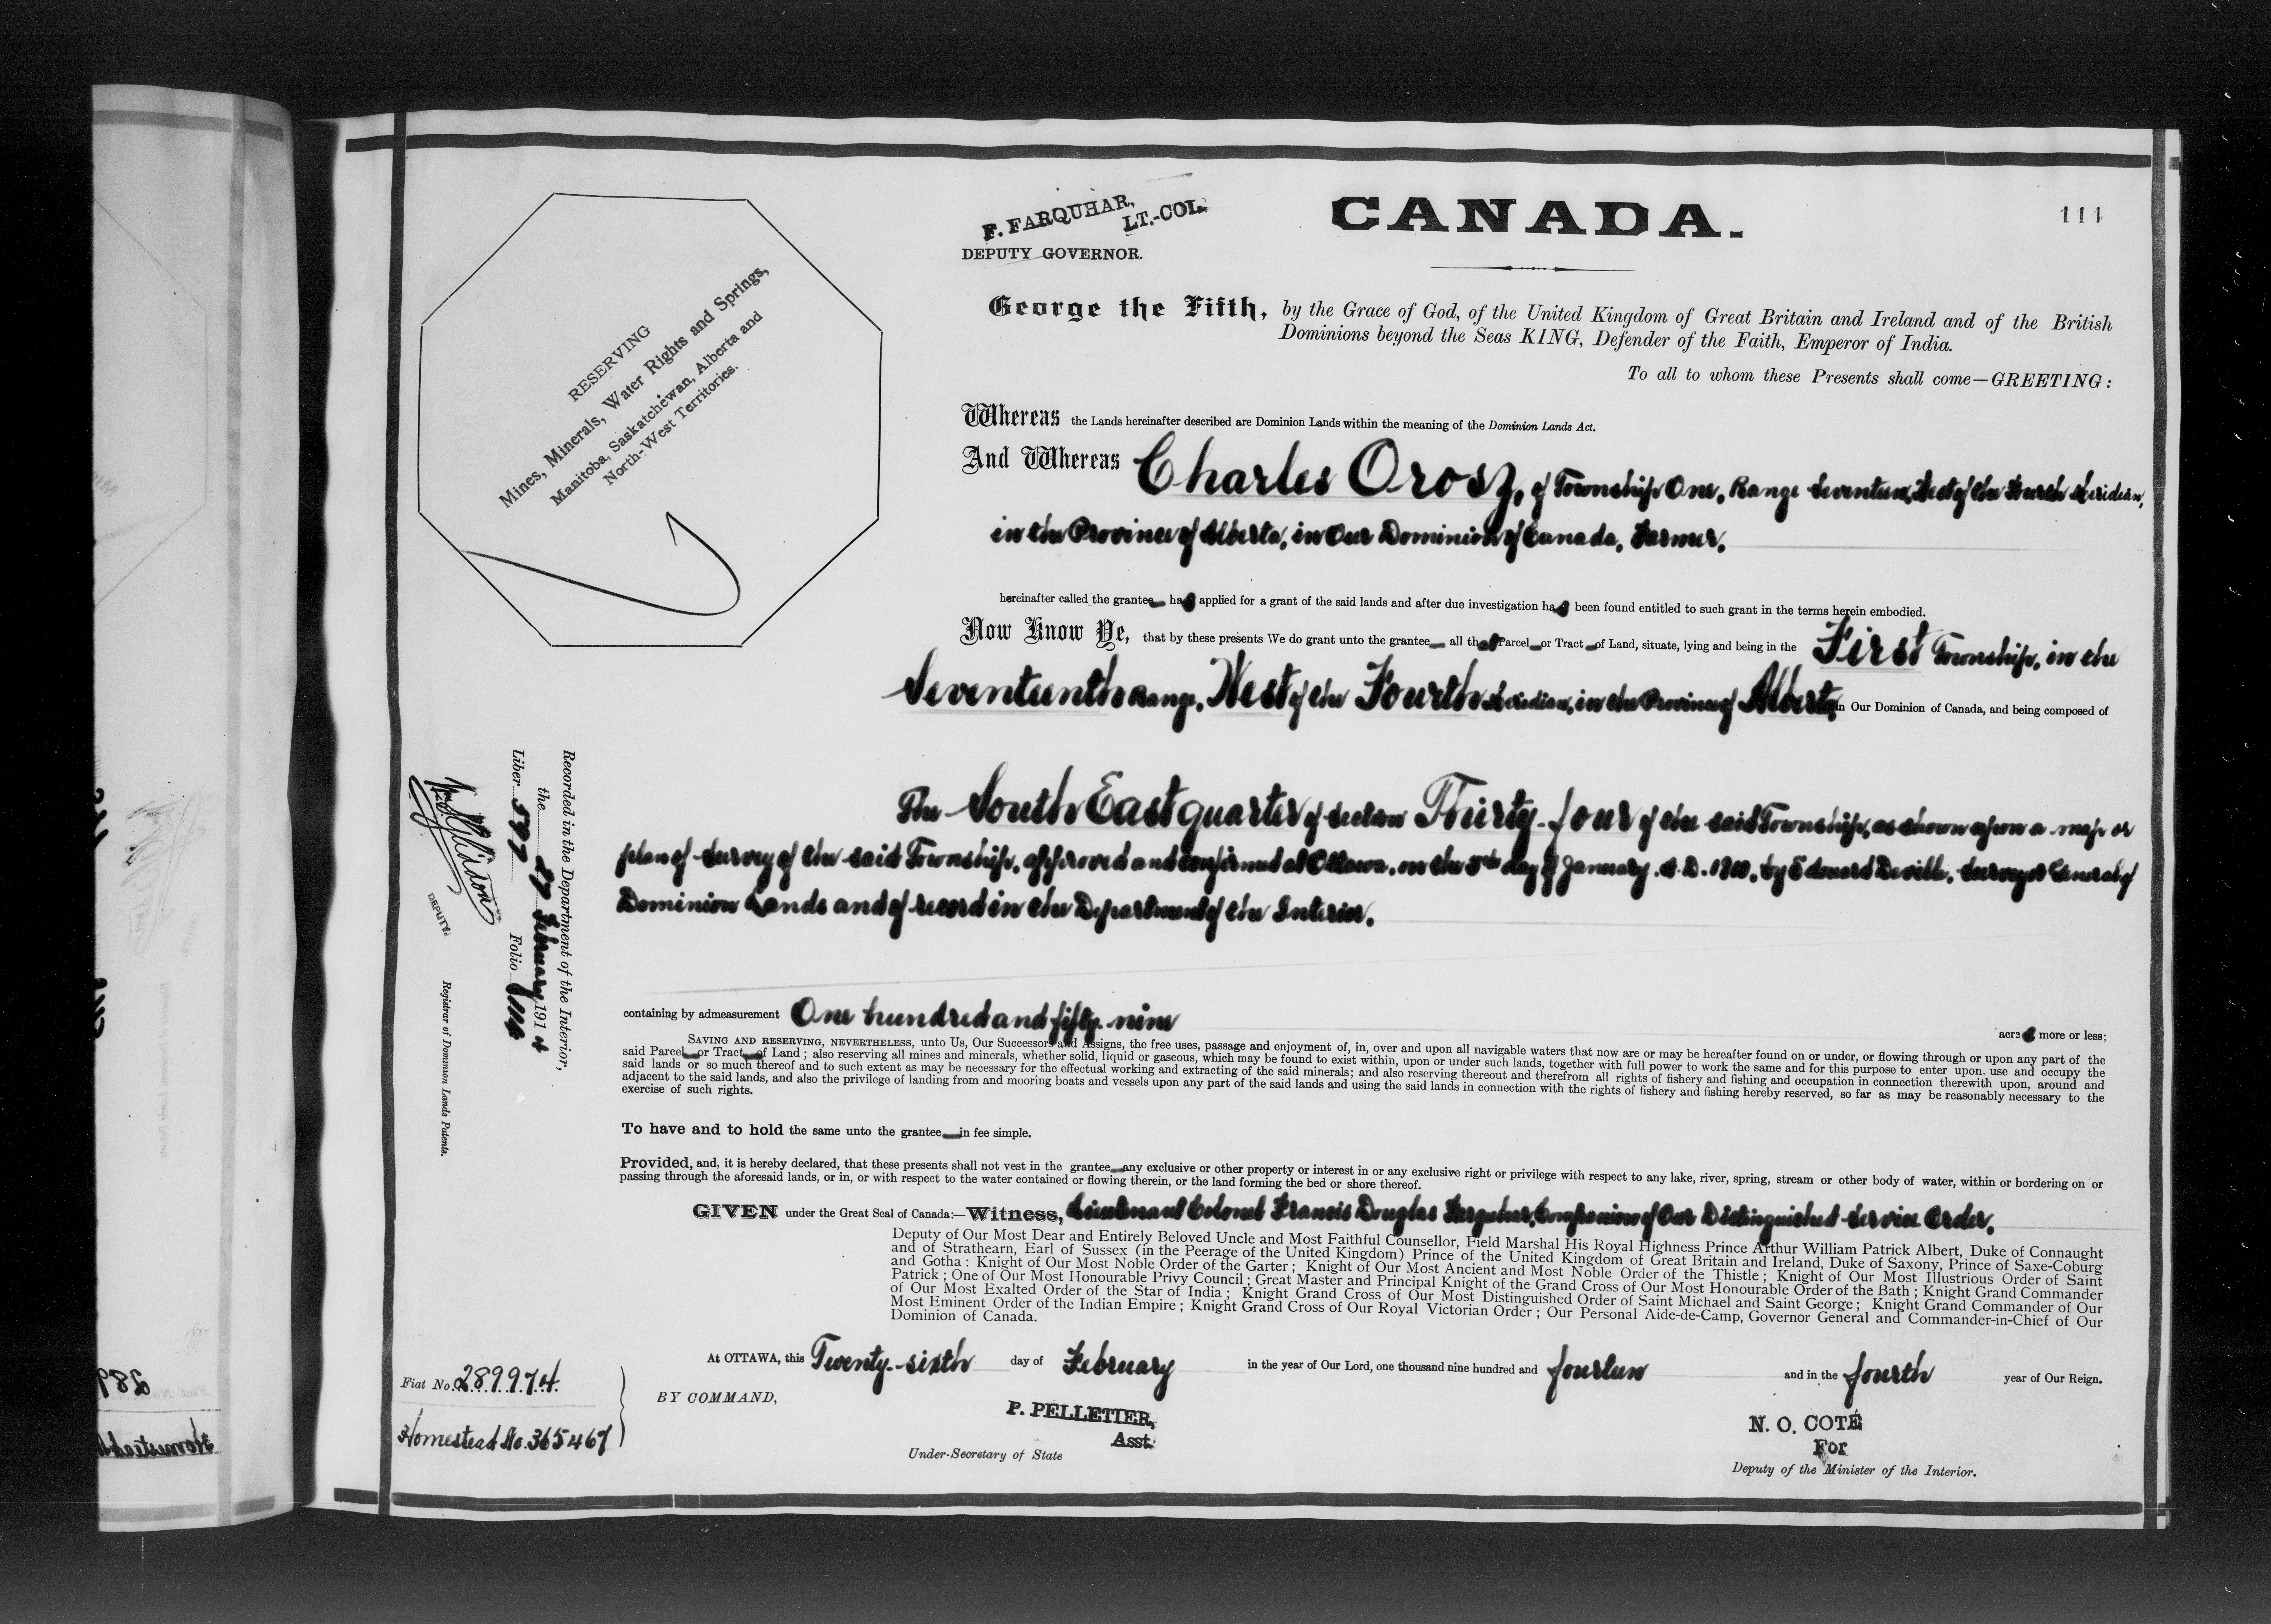 F. FARQUHAR,
LT.-COL.
DEPUTY GOVERNOR.
CANADA.
111
RESERVING
Mines, Minerals, Water Rights and Springs,
Manitoba, Saskatchewan, Alberta and
North-West Territories.
George the Fifth, by the Grace of God, of the United Kingdom of Great Britain and Ireland and of the British
Dominions beyond the Seas KING, Defender of the Faith, Emperor of India.
To all to whom these Presents shall come—GREETING:
Whereas the Lands hereinafter described are Dominion Lands within the meaning of the Dominion Lands Act.
And Whereas Charles Orosz, of Township One, Range Seventeen, West of the Fourth Meridian,
in the Province of Alberta, in Our Dominion of Canada, Farmer.
hereinafter called the grantee has applied for a grant of the said lands and after due investigation has been found entitled to such grant in the terms herein embodied.
Now Know Ye, that by these presents We do grant unto the grantee all that Parcel or Tract of Land, situate, lying and being in the First Township, in the
Seventeenth Range, West of the Fourth Meridian, in the Province of Alberta in Our Dominion of Canada, and being composed of
The South East quarter of Section Thirty-four of the said Township, as shown upon a map or
plan of survey of the said Township, approved and confirmed at Ottawa, on the day of January, A.D. by Edouard Deville, Surveyor General of
Dominion Lands and of record in the Department of the Interior.
containing by admeasurement One hundred and fifty-nine acres more or less;
SAVING AND RESERVING, NEVERTHELESS, unto Us, Our Successors and Assigns, the free uses, passage and enjoyment of, in, over and upon all navigable waters that now are or may be hereafter found on or under, or flowing through or upon any part of the
said Parcel or Tract of Land; also reserving all mines and minerals, whether solid, liquid or gaseous, which may be found to exist within, upon or under such lands, together with full power to work the same and for this purpose to enter upon, use and occupy the
said lands or so much thereof and to such extent as may be necessary for the effectual working and extracting of the said minerals; and also reserving thereout and therefrom all rights of fishery and fishing and occupation in connection therewith upon, around and
adjacent to the said lands, and also the privilege of landing from and mooring boats and vessels upon any part of the said lands and using the said lands in connection with the rights of fishery and fishing hereby reserved, so far as may be reasonably necessary to the
exercise of such rights.
To have and to hold the same unto the grantee in fee simple.
Provided, and, it is hereby declared, that these presents shall not vest in the grantee any exclusive or other property or interest in or any exclusive right or privilege with respect to any lake, river, spring, stream or other body of water, within or bordering on or
passing through the aforesaid lands, or in, or with respect to the water contained or flowing therein, or the land forming the bed or shore thereof.
GIVEN under the Great Seal of Canada:—Witness, Lieutenant Colonel Francis Douglas Farquhar, Companion of Our Distinguished Service Order,
Deputy of Our Most Dear and Entirely Beloved Uncle and Most Faithful Counsellor, Field Marshal His Royal Highness Prince Arthur William Patrick Albert, Duke of Connaught
and of Strathearn, Earl of Sussex (in the Peerage of the United Kingdom) Prince of the United Kingdom of Great Britain and Ireland, Duke of Saxony, Prince of Saxe-Coburg
and Gotha: Knight of Our Most Noble Order of the Garter; Knight of Our Most Ancient and Most Noble Order of the Thistle; Knight of Our Most Illustrious Order of Saint
Patrick; One of Our Most Honourable Privy Council; Great Master and Principal Knight of the Grand Cross of Our Most Honourable Order of the Bath; Knight Grand Commander
of Our Most Exalted Order of the Star of India; Knight Grand Cross of Our Most Distinguished Order of Saint Michael and Saint George; Knight Grand Commander of Our
Most Eminent Order of the Indian Empire; Knight Grand Cross of Our Royal Victorian Order; Our Personal Aide-de-Camp, Governor General and Commander-in-Chief of Our
Dominion of Canada.
At OTTAWA, this Twenty-sixth day of February in the year of Our Lord, one thousand nine hundred and fourteen and in the fourth year of Our Reign.
BY COMMAND,
P. PELLETIER,
Asst.
Under-Secretary of State
N. O. COTÉ
For
Deputy of the Minister of the Interior.
Fiat No. 289974
Homestead No. 365467
Recorded in the Department of the Interior,
the 27 February 1914
Liber 597 Folio 111
DEPUTY
Registrar of Dominion Lands Patents.